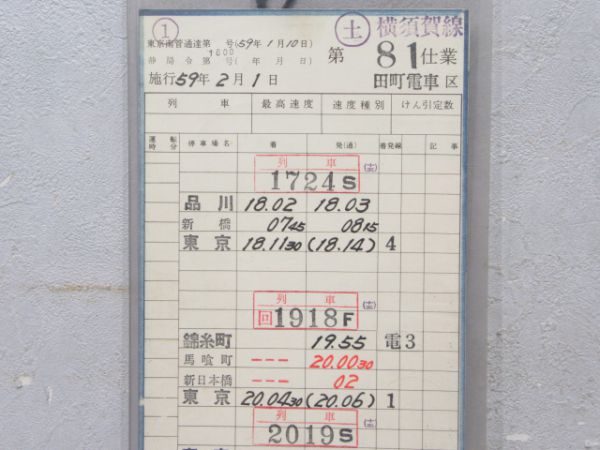 ① ㊏ 横須賀線
東京南管通達第 号(59年1月10日)
1600
静局令第 号( 年 月 日) 第 81 仕業
施行59年2月1日 田町電車区
列車 最高速度 速度種別 けん引定数
運転時分 停車場名 着 発(通) 着発線 記事
列車
1724S
品川 18.02 18.03
新橋 0745 0815
東京 18.1130 (18.14) 4
列車
回1918F
錦糸町 19.55 電3
馬喰町 --- 20.0030
新日本橋 --- 02
東京 20.0430 (20.06) 1
列車
2019S